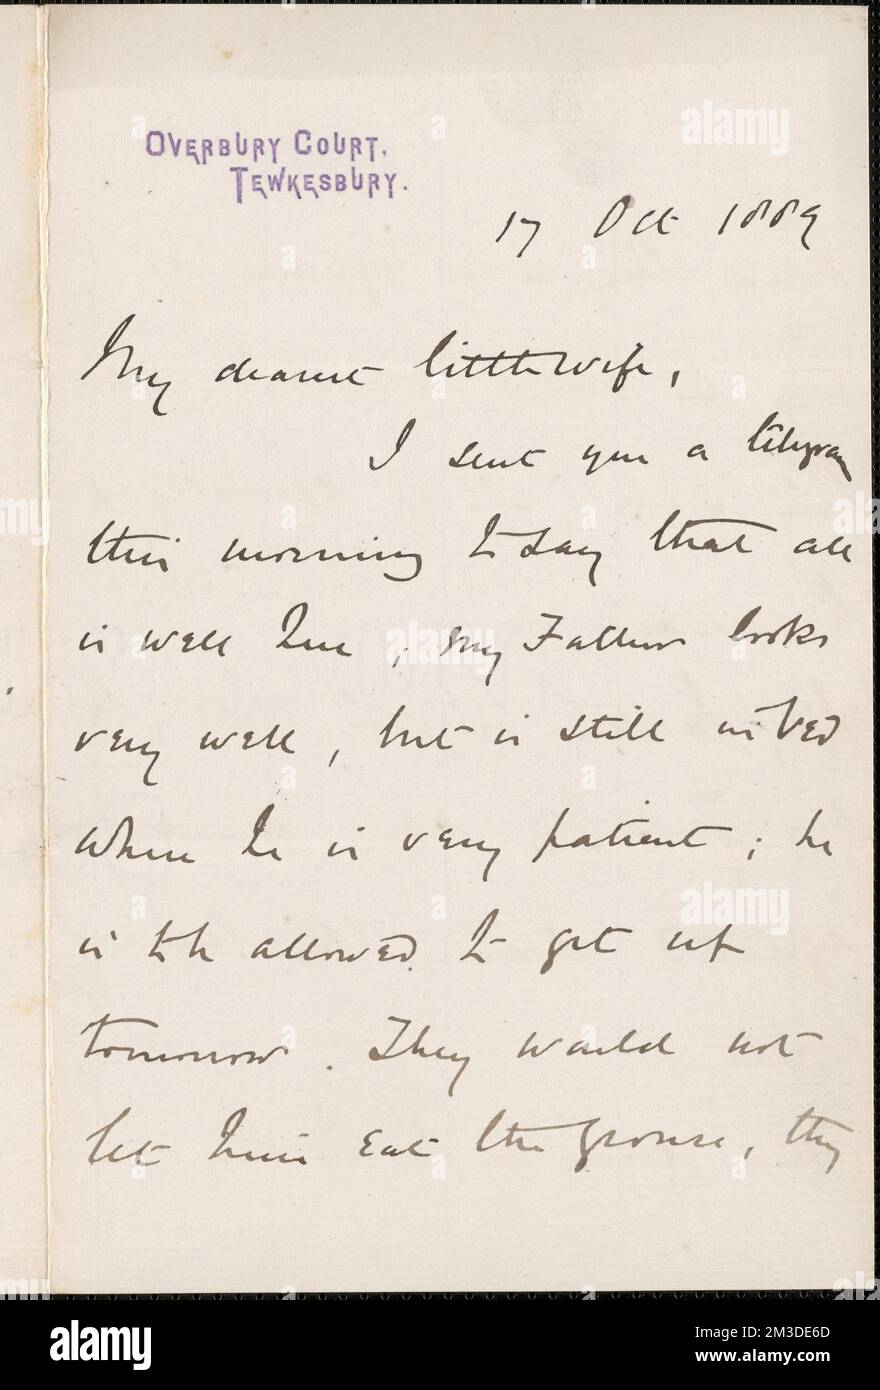 OVERBURY COURT,
TEWKESBURY.
17 Oct 1889
My dearest little wife,
I sent you a telegram
this morning to say that all
is well here, my Father looks
very well, but is still in bed
where he is very patient; he
is to be allowed to get up
tomorrow. They would not
let him eat the grouse, they
alamy
Image ID: 2M3DE6D
www.alamy.com